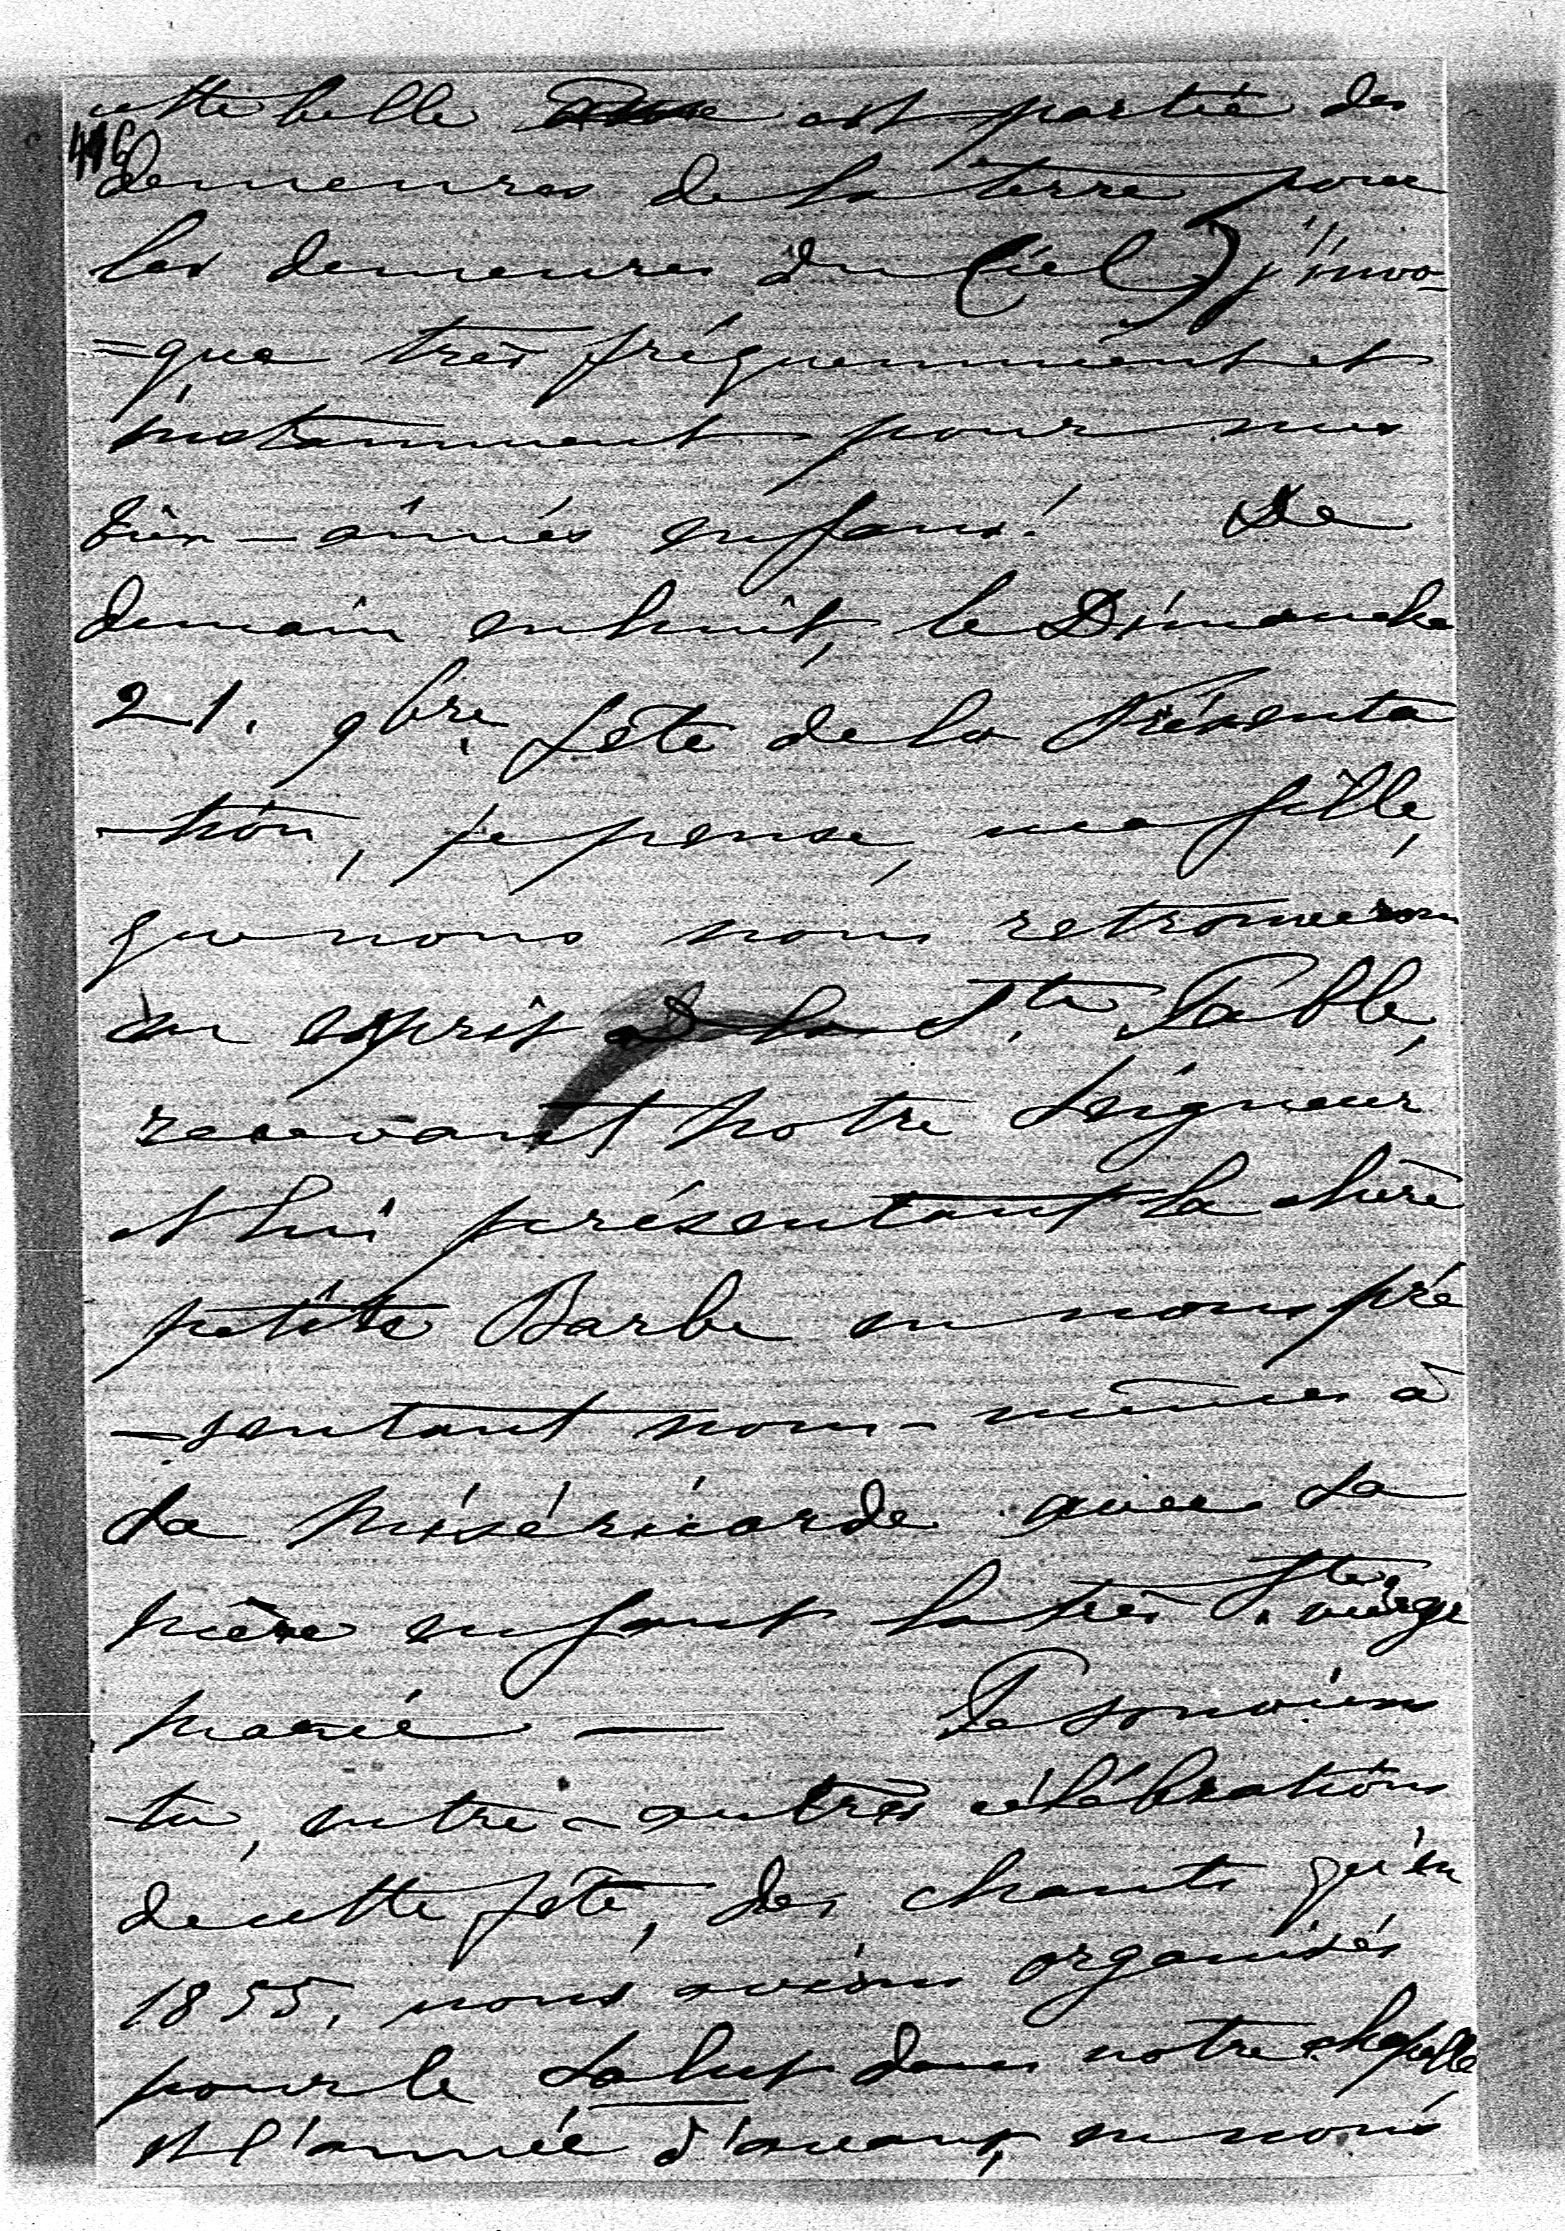 cette belle âme est partie des
416
demeures de la terre pour
les demeures du Ciel) j'invo-
=que très fréquemment et
instamment pour mes
bien-aimés enfans! De
demain en huit, le Dimanche
21. 9bre. fête de la Présenta
-tion, je pense, ma fille,
que nous nous retrouverons
en esprit à la Ste Table,
recevant Notre Seigneur
et lui présentant la chère
petite Barbe en nous pré
-sentant nous-mêmes à
Sa Miséricorde avec Sa
Mère enfant la très Ste Vierge
Marie — Te souviens
-tu, entre-autres célébrations
de cette fête, des chants qu'en
1855, nous avions organisés
pour le Salut dans notre chapelle
et l'année d'avant, en nous